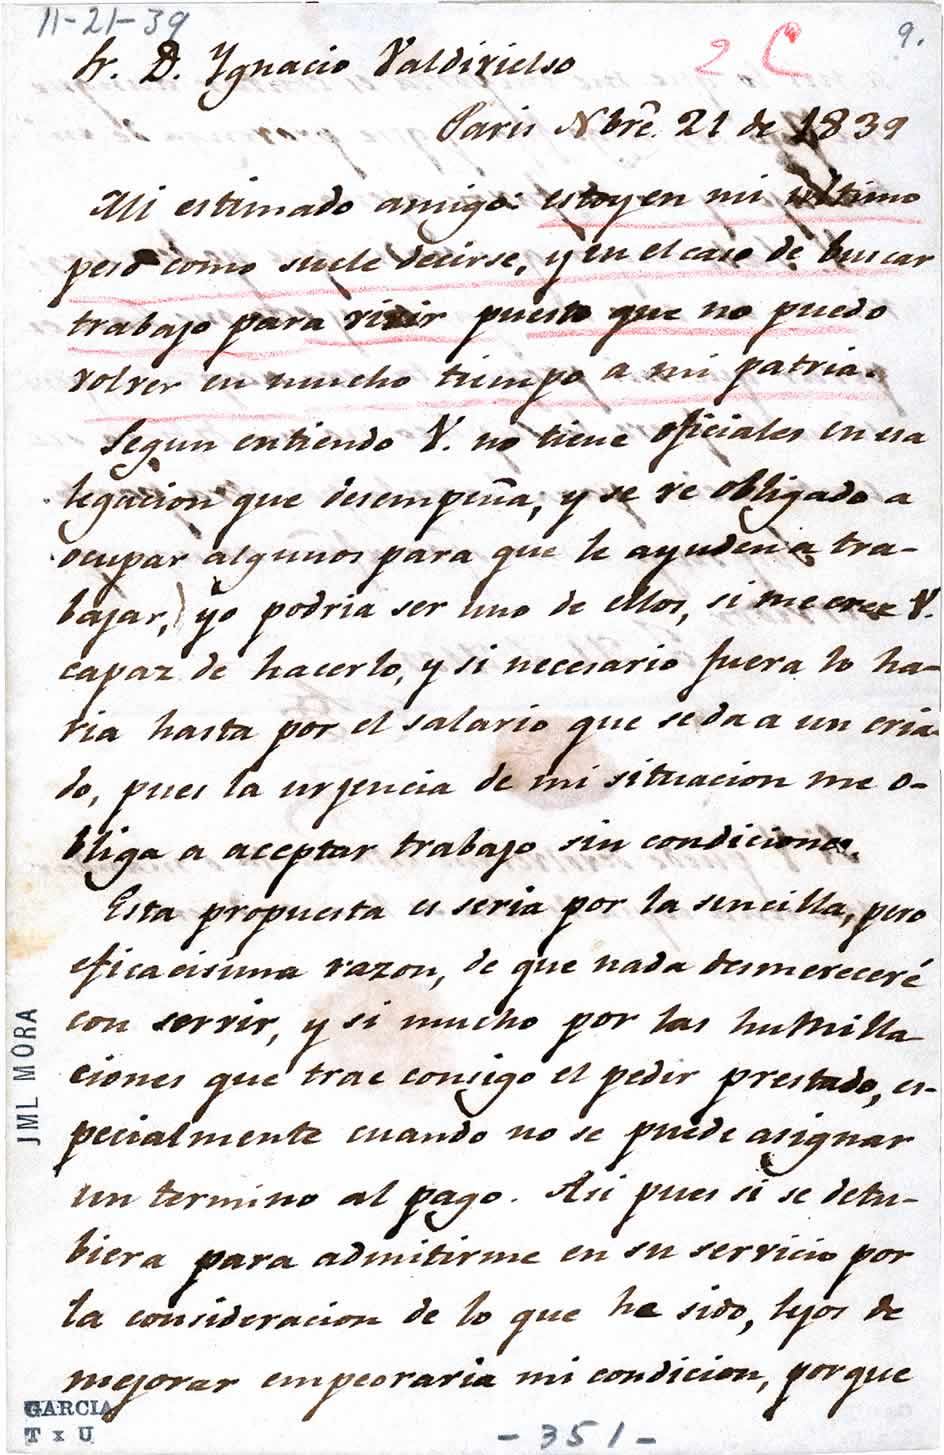 11-21-39
9.
2 C
Sr. D. Ygnacio Valdivielso
Paris Nbrē. 21 de 1839
Mi estimado amigo: estoy en mi ultimo
peso como suele decirse, y en el caso de buscar
trabajo para vivir puesto que no puedo
volver en mucho tiempo a mi patria.
Segun entiendo V. no tiene oficiales en esa
legacion que desempeña, y se ve obligado a
ocupar algunos para que le ayuden a tra-
bajar, yo podria ser uno de ellos, si me cree V.
capaz de hacerlo, y si necesario fuera lo ha-
ria hasta por el salario que se da a un cria-
do, pues la urgencia de mi situacion me o-
bliga a aceptar trabajo sin condiciones.
Esta propuesta es seria por la sencilla, pero
eficacisima razon, de que nada desmereceré
con servir, y si mucho por las humilla
ciones que trae consigo el pedir prestado, es-
pecialmente cuando no se puede asignar
un termino al pago. Asi pues si se detu-
biera para admitirme en su servicio por
la consideracion de lo que he sido, lejos de
mejorar empeoraria mi condicion, porque
JML MORA
GARCIA
T x U
-351-